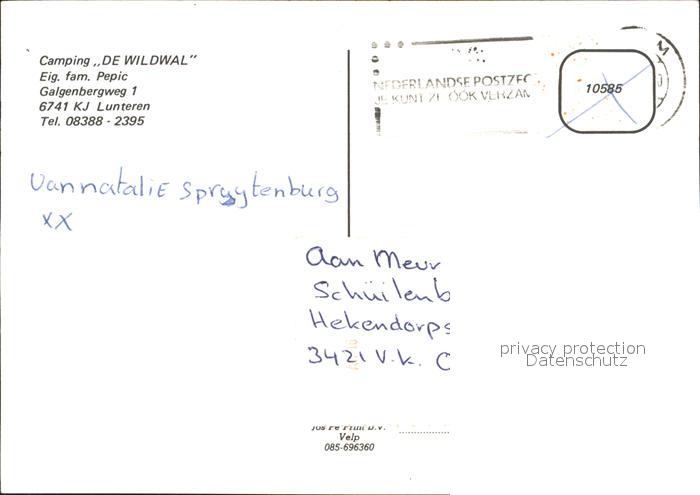 Camping „DE WILDWAL”
Eig. fam. Pepic
Galgenbergweg 1
6741 KJ Lunteren
Tel. 08388 - 2395
NEDERLANDSE POSTZEG
JE KUNT ZE ÓÓK VERZAM
M
10585
Van natalie Spruytenburg
XX
Aan Meur
Schüilenb
Hekendorps
3421 V.k. O
privacy protection
Datenschutz
Velp
085-696360